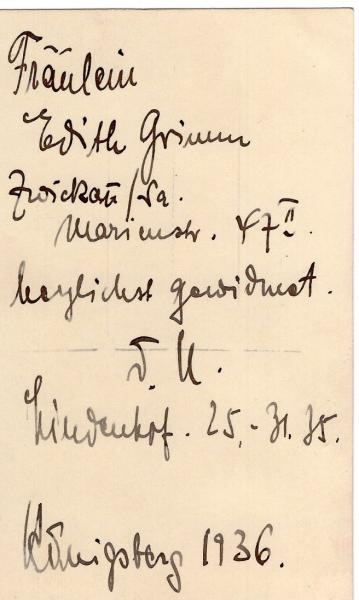 Fräulein
Edith Grimm
Zwickau/Sa.
Marienstr. 47 II.
herzlichst gewidmet.
D. U.
Lindenhof. 25.-31. 35.
Königsberg 1936.